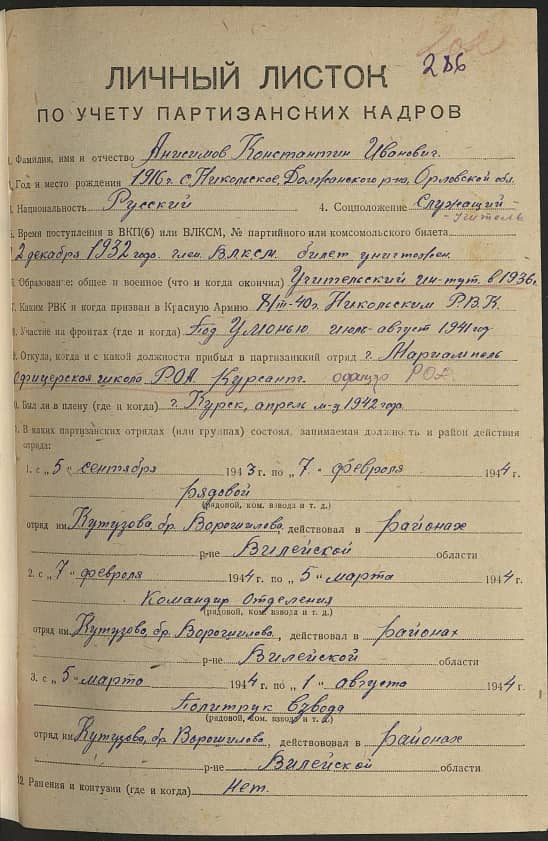 286
ЛИЧНЫЙ ЛИСТОК
ПО УЧЕТУ ПАРТИЗАНСКИХ КАДРОВ
Фамилия, имя и отчество Анисимов Константин Иванович.
Год и место рождения 1916 г. с. Никольское, Должанского р-на, Орловской обл.
Национальность Русский 4. Соцположение Служащий-
-учитель
5. Время поступления в ВКП(б) или ВЛКСМ, № партийного или комсомольского билета
2 декабря 1932 года. член ВЛКСМ. билет уничтожен.
6 Образование: общее и военное (что и когда окончил) Учительский ин-тут. в 1936г.
7. Каким РВК и когда призван в Красную Армию 40г. Никольским Р.В.К.
8. Участие на фронтах (где и когда) Под Уманью июль-август 1941 год
9. Откуда, когда и с какой должности прибыл в партизанкий отряд г. Мариамполь
Офицерская школа РОА. Курсант. офицер РОА.
0. Был ли в плену (где и когда) г. Курск, апрель м-ц 1942 года.
1. В каких партизанских отрядах (или группах) состоял, занимаемая должность и район действия
отряда:
1. с „5 сентября 1943 г. по „7" февраля 1944 г.
рядовой
(рядовой, ком. взвода и т. д.)
отряд им. Кутузова, бр. Ворошилова, действовал в районах
р-не Вилейской области
2. с „7" февраля 1944 г. по „5" марта 1944 г.
Командир Отделения
(рядовой, ком. взвода и т. д.)
отряд им. Кутузова, бр. Ворошилова, действовал в районах
р-не Вилейской области
3. с „5" марта 1944 г. по „1" августа 1944 г.
Политрук взвода
(рядовой, ком. взвода и т. д.)
отряд им. Кутузова, бр. Ворошилова, действовал в районах
р-не Вилейской области
12. Ранения и контузии (где и когда) Нет.